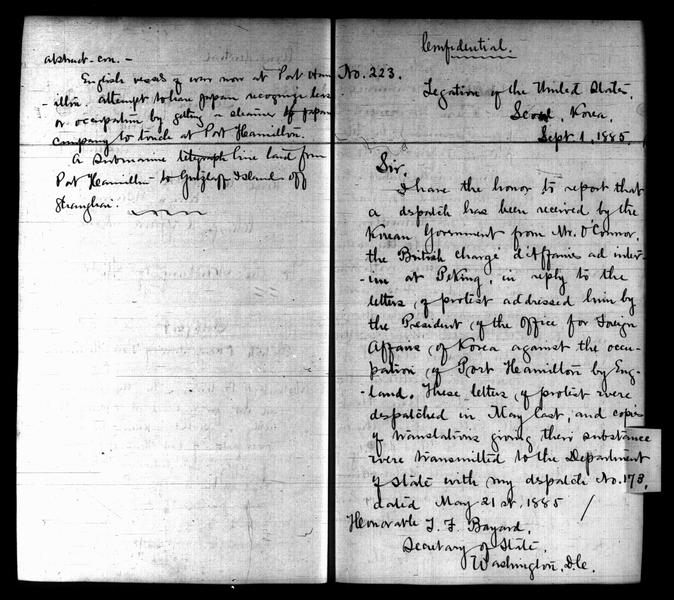 abstract-con. -
English vessels of war now at Port Ham
-ilton. Attempt to have Japan recognize
or occupation by getting a steamer of Japan
company to touch at Port Hamilton.
A submarine telegraph line laid from
Port Hamilton to Gutzlaff Island off
Shanghai.
Confidential.
No. 223.
Legation of the United States,
Seoul, Korea,
Sept 1, 1885.
Sir.
I have the honor to report that
a dispatch has been received by the
Korean Government from Mr. O'Connor,
the British chargé d'Affaires ad inter-
-im at Peking, in reply to the
letters of protest addressed him by
the President of the Office for Foreign
Affairs of Korea against the occu-
pation of Port Hamilton by Eng-
-land. These letters of protest were
despatched in May last, and copies
of translations giving their substance
were transmitted to the Department
of State with my dispatch No. 173,
dated May 21st, 1885
Honorable T. F. Bayard,
Secretary of State,
Washington, D.C.